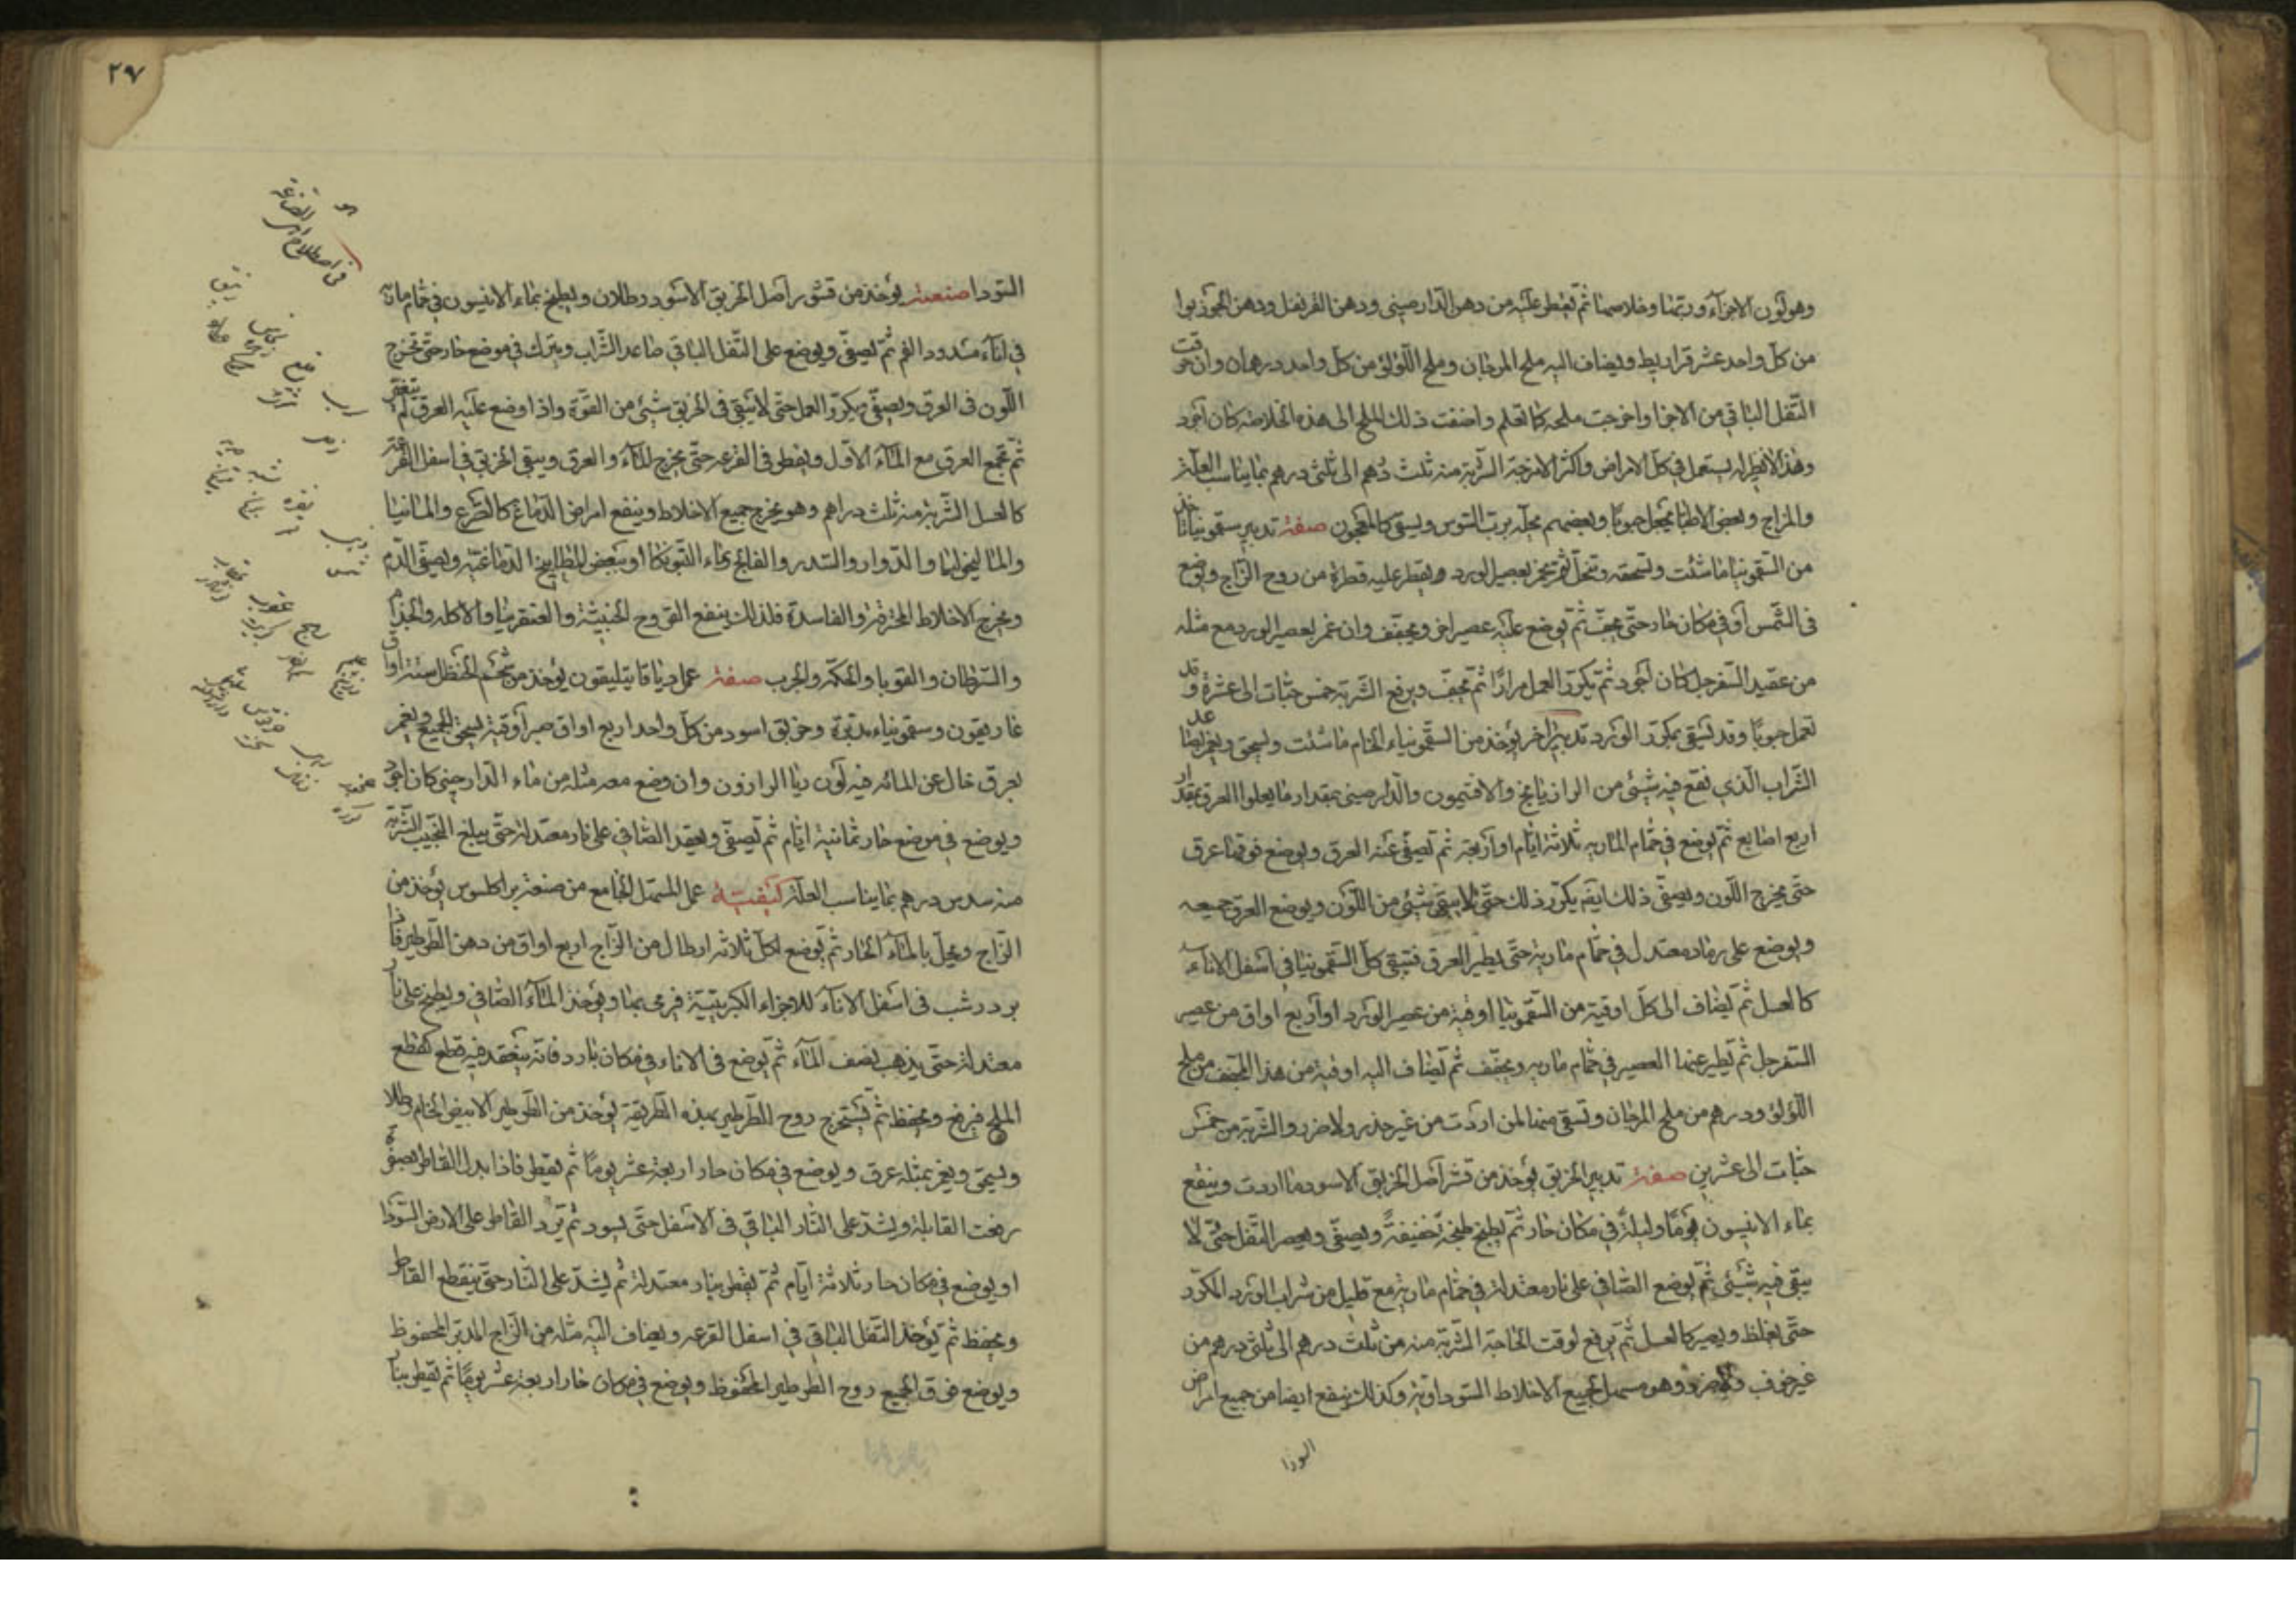 وهو لون الاجزآء وربتها وخلاصتها ثم يقطر عليه من دهن الدارصيني ودهن القرنفل ودهن الجوزبوا
من كل واحد عشر قراريط ويضاف اليه ملح المرجان وملح اللؤلؤ من كل واحد درهمان وان حرقت
الثفل الباقي من الاجزا واخرجت ملحه كما تعلم واضفت ذلك الملح الى هذه الخلاصه كان اجود
وهذا يستعمل في كل الامراض واكثر الامزجة الشربة منه ثلث درهم الى ثلثي درهم بما يناسب العلة
والمزاج وبعض الاطبا يجعل حبوبا وبعضهم يحله برب السوس ويسقى كالمعجون صفة تدبير سقمونيا تاخذ
من السقمونيا ما شئت وتسحقه وتنخل ثم يخمر بعصير الورد ويقطر عليه قطرة من روح الزاج ويوضع
في الشمس او في مكان حار حتى يجف ثم يوضع عليه عصير اخر ويجفف وان خمر بعصير الورد مع مثله
من عقيد السفرجل كان اجود ثم يكرر العمل مرارا ثم يجفف ويرفع الشربة خمس حبات الى عشرة وقد
تعمل حبوبا وقد تسقى بمكرر الورد تدبير اخر يؤخذ من السقمونياء الخام ما شئت ويسحق ويغمر بصاعد
الشراب الذي نقع فيه شيئ من الرازيانج والافتيمون والدارصيني بمقدار ما يعلوا العرق بمقدار
اربع اصابع ثم يوضع في حمام المارية ثلاثة ايام او اربعة ثم تصفى عنه العرق ويوضع فوقها عرق
حتى يخرج اللون ويصفى ذلك ايضا يكرر ذلك حتى لا يبقى شيئ من اللون ويوضع العرق جميعه
ويوضع على رماد معتدل في حمام مارية حتى يطير العرق فتبقى كل السقمونيا في اسفل الاناء
كالعسل ثم يضاف الى كل اوقية من السقمونيا اوقية من عصير الورد او اربع اواق من عصير
السفرجل ثم يطير عنها العصير في حمام ماريه ويجفف ثم يضاف اليه اوقية من هذا المجفف من ملح
اللؤلؤ ودرهم من ملح المرجان وتسقى منها لمن اردت من غير حذر ولا ضرر والشربة من خمس
حبات الى عشرين صفة تدبير الخربق يؤخذ من قشر اصل الخربق الاسود ما اردت وينقع
بماء الانيسون يوما وليلة في مكان حار ثم يطبخ طبخة خفيفة ويصفى ويعصر الثفل حتى لا
يبقى فيه شيئ ثم يوضع الصافي على نار معتدلة في حمام مارية مع قليل من شراب الورد المكرر
حتى يغلظ ويصير كالعسل ثم يرفع لوقت الحاجة الشربة منه من ثلث درهم الى ثلثي درهم من
غير خوف ولا ضرر وهو مسهل لجميع الاخلاط السوداوية وكذلك ينفع ايضا من جميع امراض
السودا
٢٧
السودا صنعته يؤخذ من قشور اصل الخربق الاسود رطلان ويطبخ بماء الانيسون في حمام مارية
في اناء مسدود الفم ثم يصفى ويوضع على الثفل الباقي صاعد الشراب ويترك في موضع حار حتى تخرج
اللون في العرق ويصفى ويكرر العمل حتى لا يبقى في الخربق شيئ من القوة واذا وضع عليه العرق لم يتغير
ثم تجمع العرق مع المآء الاول ويقطر في القرعه حتى يخرج المآء والعرق ويبقى الخربق في اسفل القرعة
كالعسل الشربة منه ثلث دراهم وهو يخرج جميع الاخلاط وينفع امراض الدماغ كالصرع والمانيا
والماليخوليا والدوار والسدر والفالج بماء او ببعض المطابيخ الدماغية ويصفى الدم
ويخرج الاخلاط المحترقة والفاسدة فلذلك ينفع القروح الخبيثة والغنغرينا والاكله والجذام
والسرطان والقوبا والحكة والجرب صفة عمل دياقاتيليقون يؤخذ من شحم الحنظل ستة اواق
غاريقون وسقمونياء مدبرة وخربق اسود من كل واحد اربع اواق صبر اوقية يسحق الجميع ويغمر
بعرق خال عن المائه فيه لون ديا الوارذون وان وضع معه مثله من ماء الدارصيني كان اجود
ويوضع في موضع حار ثمانية ايام ثم تصفى ويعقد الصافي على نار معتدلة حتى يبلغ التحبيب الشربة
منه سدس درهم بما يناسب العلة كيفيته عمل المسهل الجامع من صنعة براكلسوس يؤخذ من
الزاج ويحل بالمآء الحار ثم يوضع لكل ثلاثه ارطال من الزاج اربع اواق من دهن الطرطير فاذا
برد رسب في اسفل الانآء للاجزاء الكبريتية فرمى بها ويؤخذ المآء الصافي ويطبخ على نار
معتدلة حتى يذهب نصف المآء ثم يوضع في الاناء في مكان بارد فانه ينعقد فيه قطع كقطع
الملح فيرفع ويحفظ ثم يستخرج روح الطرطير بهذه الطريقة يؤخذ من الطرطير الابيض الخام رطلا
ويسحق ويغمر بمثله عرق ويوضع في مكان حار اربعة عشر يوما ثم يقطر فاذا بدا القاطر بصفرة
رفعت القابلة ويشد على النار الباقي في الاسفل حتى يسود ثم ترد القاطر على الارض السودا
او يوضع في مكان حار ثلاثة ايام ثم يقطر بنار معتدلة ثم يشد على النار حتى ينقطع القاطر
ويحفظ ثم يؤخذ الثفل الباقي في اسفل القرعه ويضاف اليه مثله من الزاج المدبر المحفوظ
ويوضع فوق الجميع روح الطرطير المحفوظ ويوضع في مكان حار اربعة عشر يوما ثم يقطر بنار